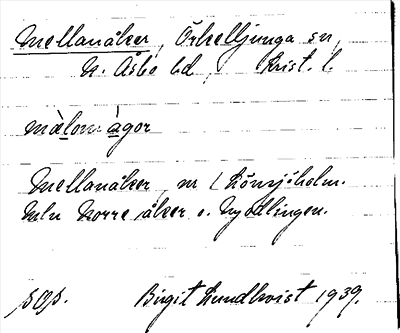 Mellanåker, Örkelljunga sn,
N. Åsbo hd, Krist. l.
màlon àgor
Mellanåker, nr 1 Lönsjöholm.
Mln Norre åker o. Nyodlingen.
sOs. Birgit Lundkvist 1939.